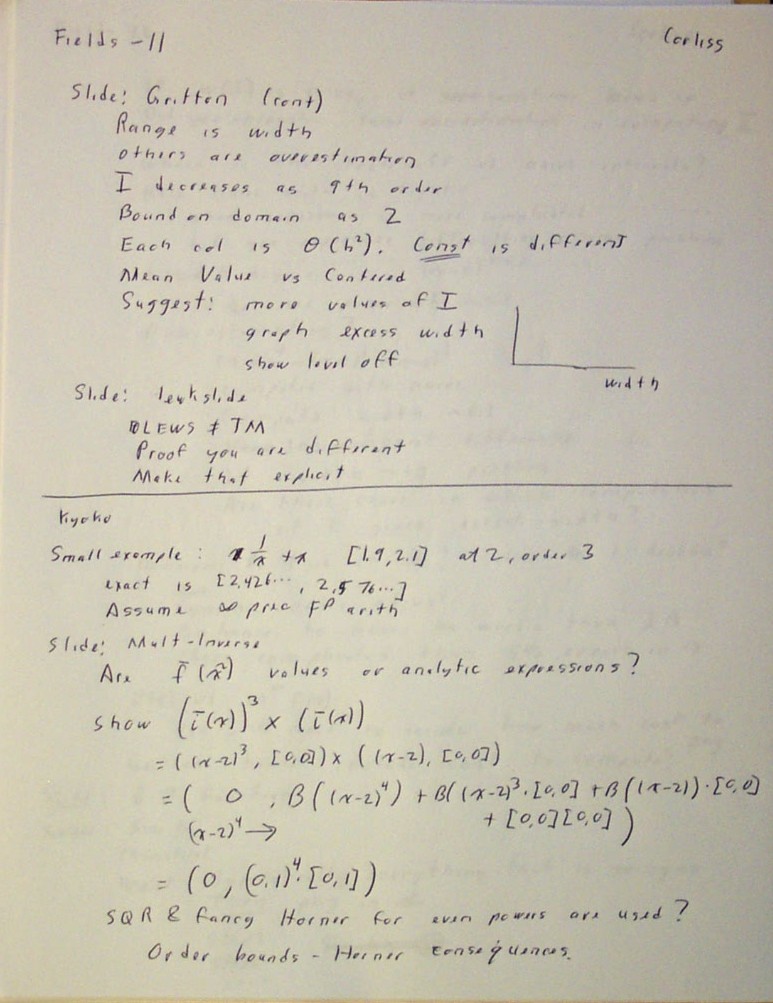 Fields -11 Corliss
Slide: Gritton (cont)
Range is width
others are overestimation
I decreases as 9th order
Bound on domain as 2
Each col is Θ(h²). Const is different
Mean Value vs Centered
Suggest: more values of I
graph excess width
show level off
width
Slide:
DLEWS ≠ TM
Proof you are different
Make that explicit
Kyoko
Small example: 1/x + x [1.9, 2.1] at 2, order 3
exact is [2.426..., 2.576...]
Assume ∞ prec FP arith
Slide: Mult-Inverse
Are f̄(x̂) values or analytic expressions?
show (ī(x))³ × (ī(x))
= ((x-2)³, [0,0]) × ((x-2), [0,0])
= ( 0 , B((x-2)⁴) + B((x-2)³·[0,0] + B((x-2))·[0,0]
(x-2)⁴ → + [0,0][0,0] )
= (0, (0.1)⁴·[0,1])
SQR & fancy Horner for even powers are used?
Order bounds - Horner consequences.